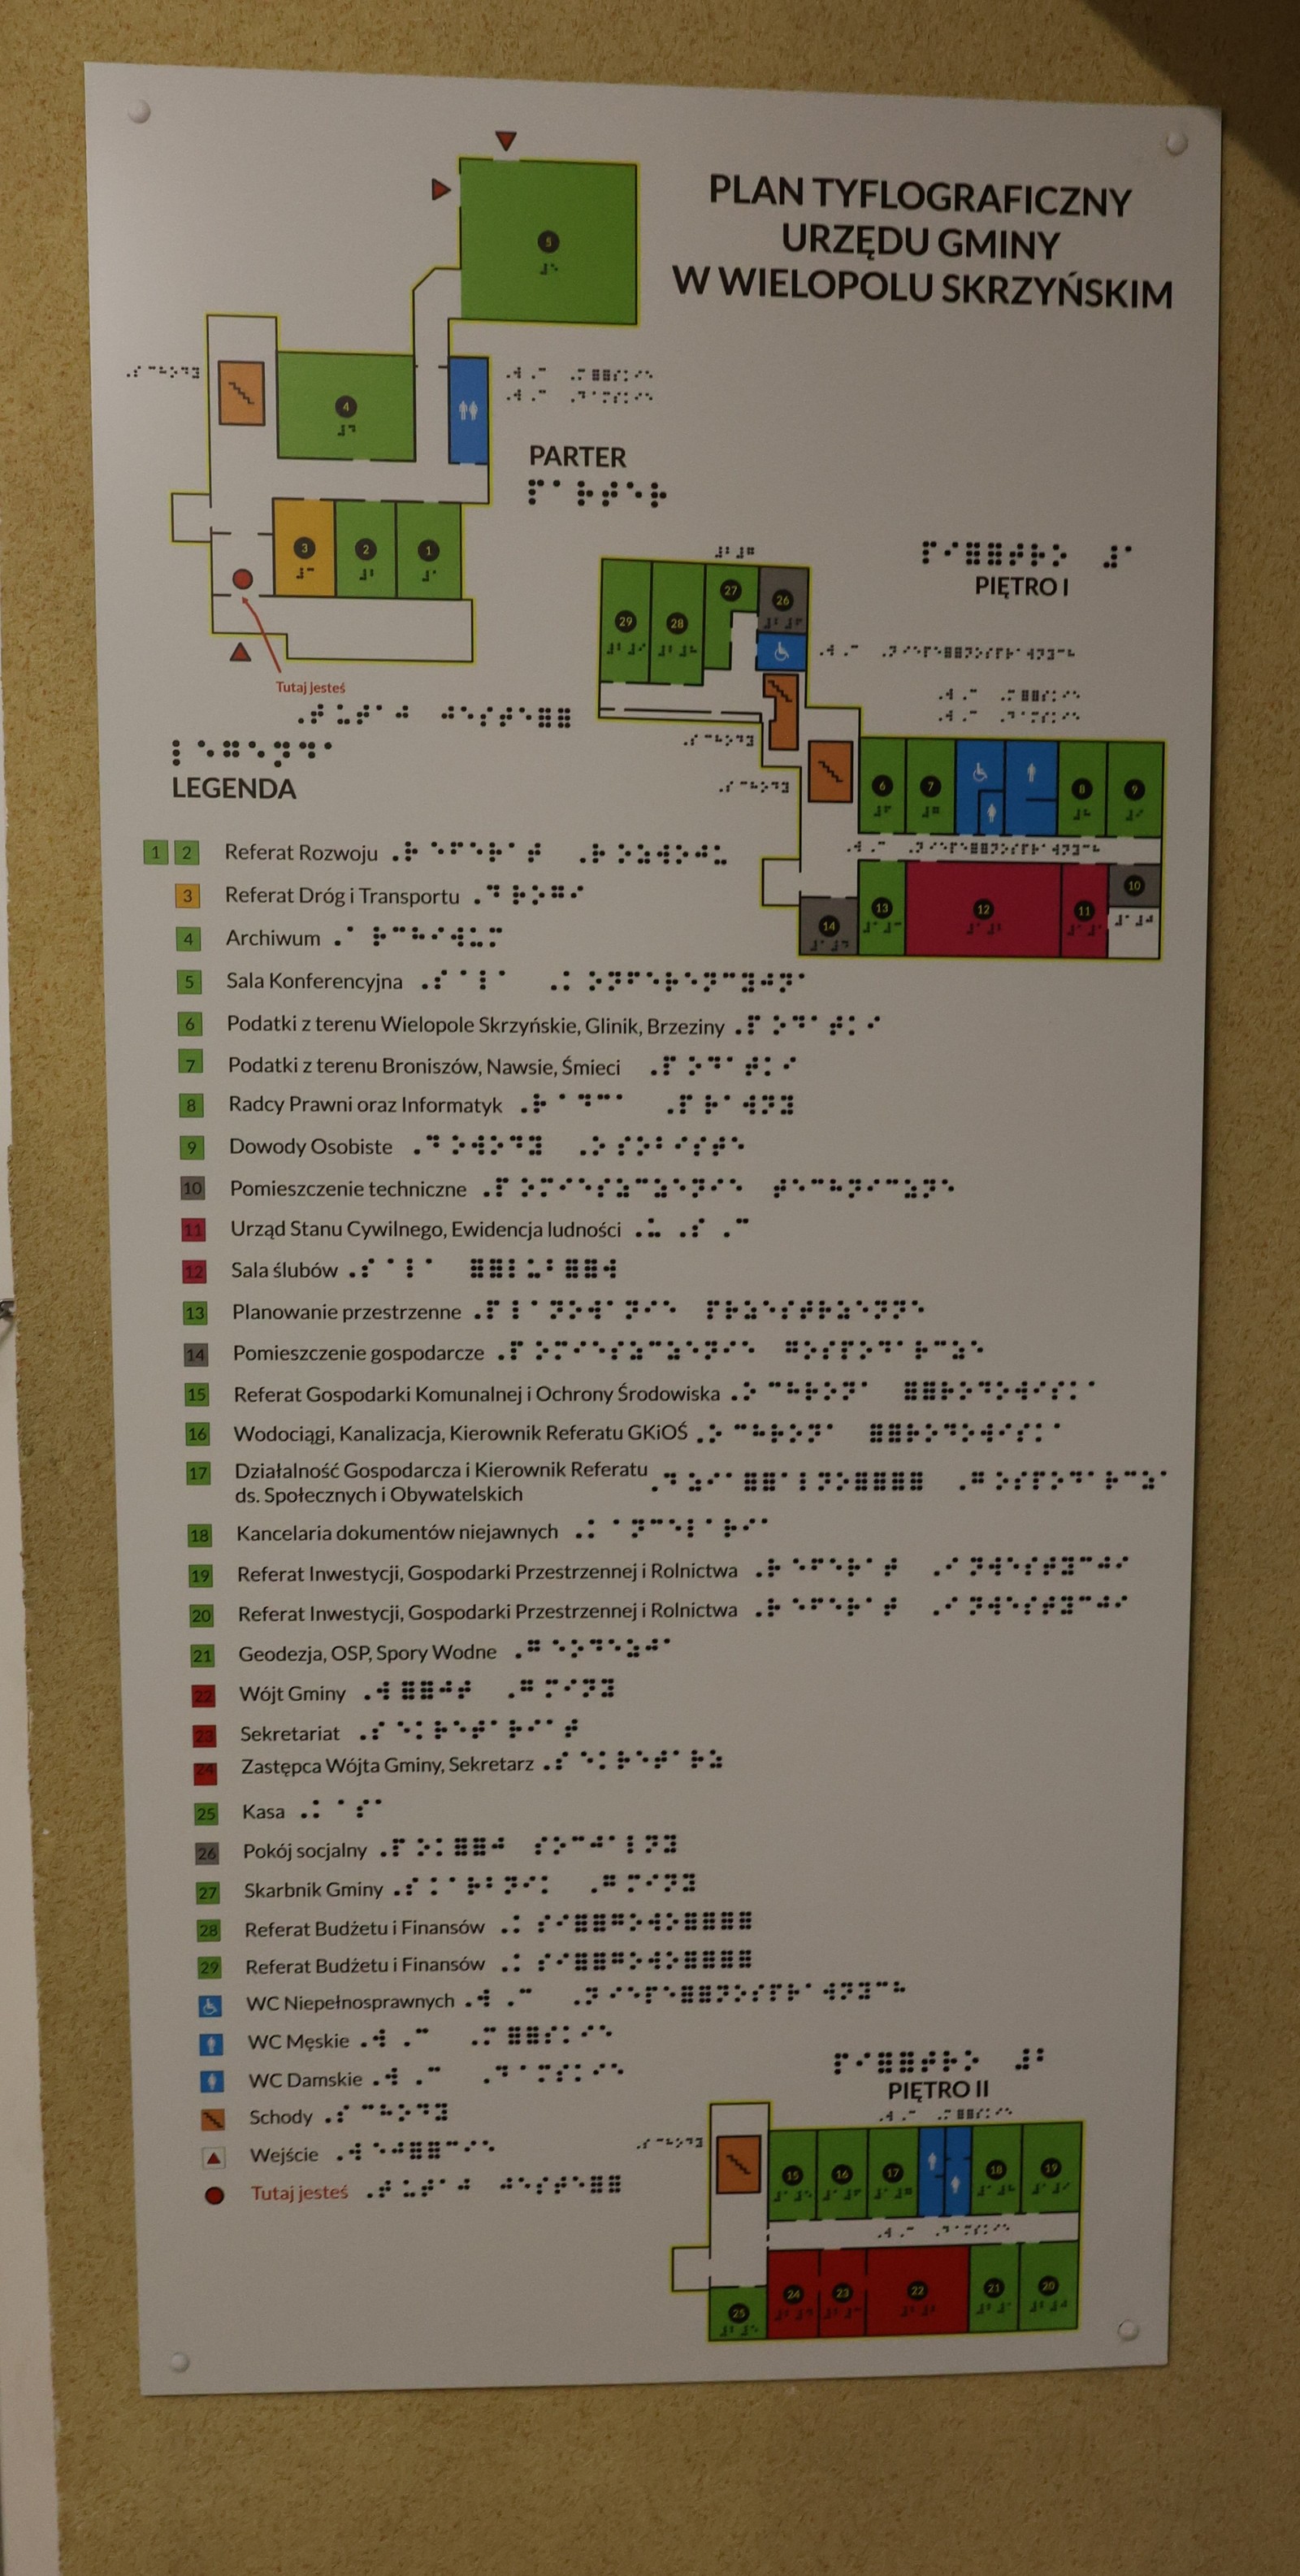 PLAN TYFLOGRAFICZNY
URZĘDU GMINY
W WIELOPOLU SKRZYŃSKIM
5
4
PARTER
3
2
1
Tutaj jesteś
PIĘTRO I
29
28
27
26
6
7
8
9
10
14
13
12
11
LEGENDA
1 2 Referat Rozwoju
3 Referat Dróg i Transportu
4 Archiwum
5 Sala Konferencyjna
6 Podatki z terenu Wielopole Skrzyńskie, Glinik, Brzeziny
7 Podatki z terenu Broniszów, Nawsie, Śmieci
8 Radcy Prawni oraz Informatyk
9 Dowody Osobiste
10 Pomieszczenie techniczne
11 Urząd Stanu Cywilnego, Ewidencja ludności
12 Sala ślubów
13 Planowanie przestrzenne
14 Pomieszczenie gospodarcze
15 Referat Gospodarki Komunalnej i Ochrony Środowiska
16 Wodociągi, Kanalizacja, Kierownik Referatu GKiOŚ
17 Działalność Gospodarcza i Kierownik Referatu
ds. Społecznych i Obywatelskich
18 Kancelaria dokumentów niejawnych
19 Referat Inwestycji, Gospodarki Przestrzennej i Rolnictwa
20 Referat Inwestycji, Gospodarki Przestrzennej i Rolnictwa
21 Geodezja, OSP, Spory Wodne
22 Wójt Gminy
23 Sekretariat
24 Zastępca Wójta Gminy, Sekretarz
25 Kasa
26 Pokój socjalny
27 Skarbnik Gminy
28 Referat Budżetu i Finansów
29 Referat Budżetu i Finansów
WC Niepełnosprawnych
WC Męskie
WC Damskie
Schody
Wejście
Tutaj jesteś
PIĘTRO II
15
16
17
18
19
25
24
23
22
21
20